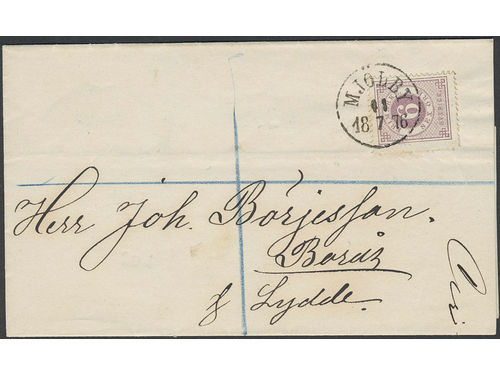 MJÖLBY
18 7 76
6
SVERIGE
Herr Joh. Börjesson.
Borås
Lydde.